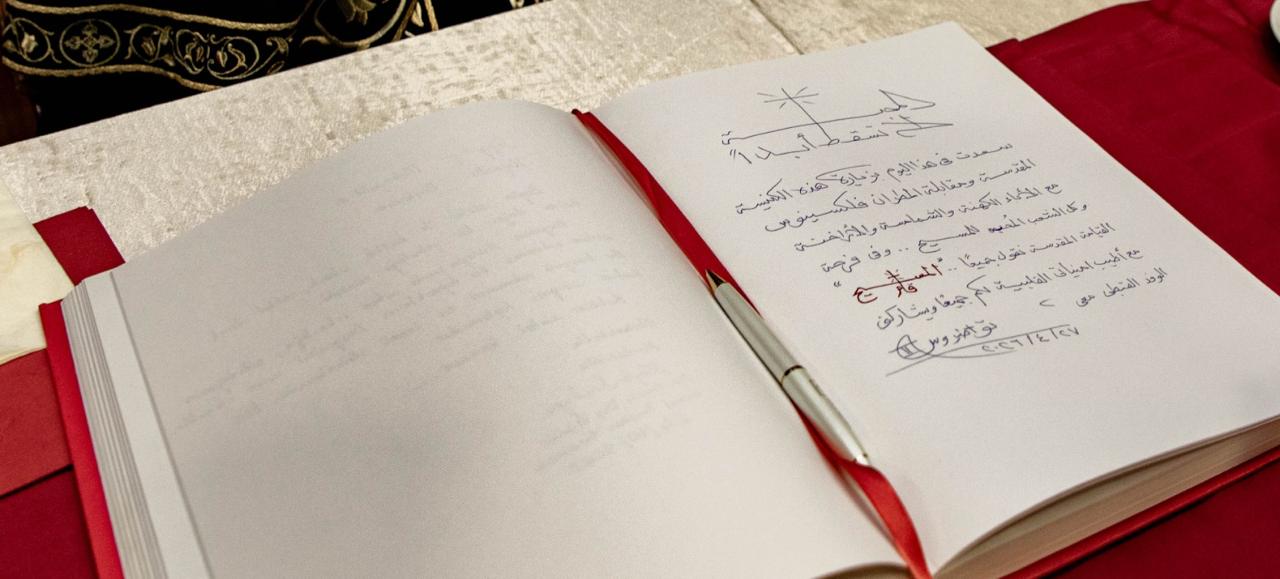 المحبـــة
لا تسقط أبدا"
سعدت فى هذا اليوم بزيارة هذه الكنيسة
المقدسة ومقابلة المطران فلكسينوس
مع الآباء الكهنة والشمامسة والأراخنة
وكل الشعب المحب للمسيح .. وفى فرحة
القيامة المقدسة نقول جميعًا .. "المسيح
قام"
مع أطيب امنياتى القلبية لكم جميعًا ويشاركنى
الوفد القبطى معى
تواضروس II
٢٠٢٦/٤/٢٧